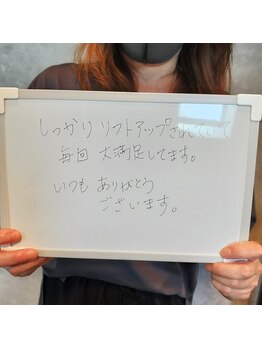 しっかり リフトアップされていて
毎回 大満足してます。
いつも ありがとう
ございます。